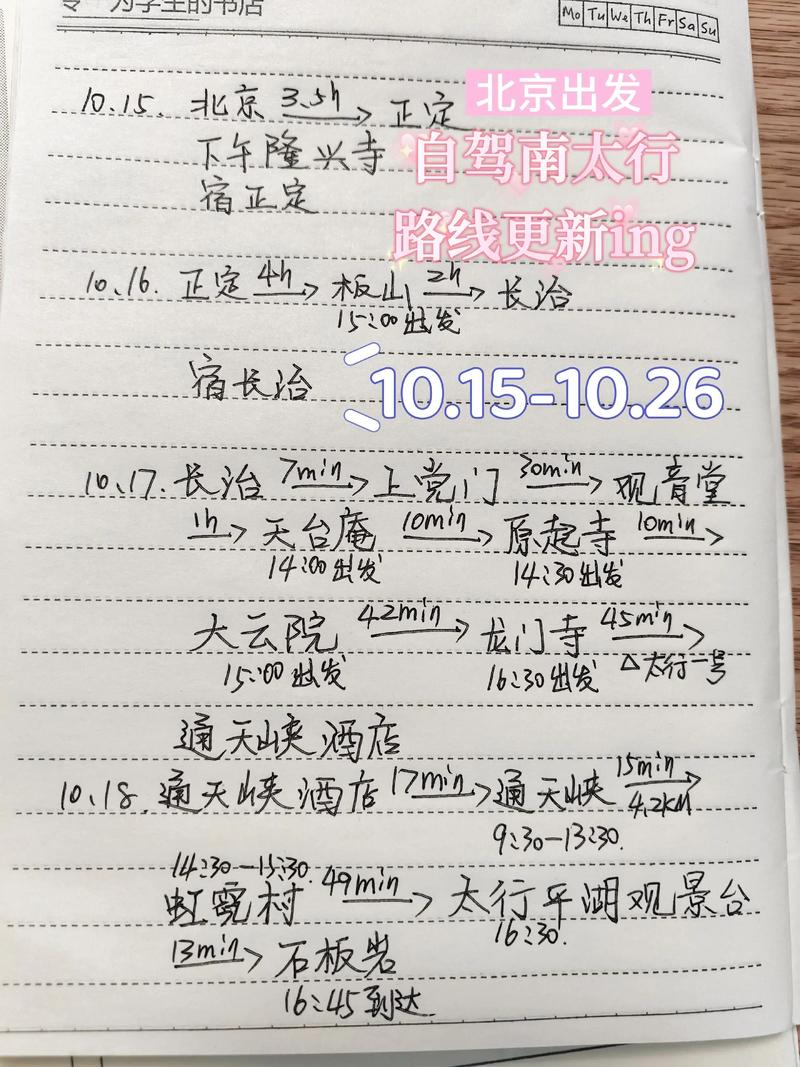 为学生的书店
Mo Tu We Th Fr Sa Su
10.15. 北京 3.5h→ 正定
北京出发
下午隆兴寺
自驾南太行
宿正定
路线更新ing
10.16. 正定 4h→ 板山 2h→ 长治
15:00出发
宿长治
10.15-10.26
10.17. 长治 7min→ 上党门 30min→ 观音堂
1h→ 天台庵 10min→ 原起寺 10min→
14:00出发 14:30出发
大云院 42min→ 龙门寺 45min→
15:00出发 16:30出发 △太行一号
通天峡酒店
10.18. 通天峡酒店 17min→ 通天峡 15min→ 4.2KM
9:30-13:30.
14:30-15:30.
虹霓村 49min→ 太行平湖观景台
16:30.
13min→ 石板岩
16:45到达